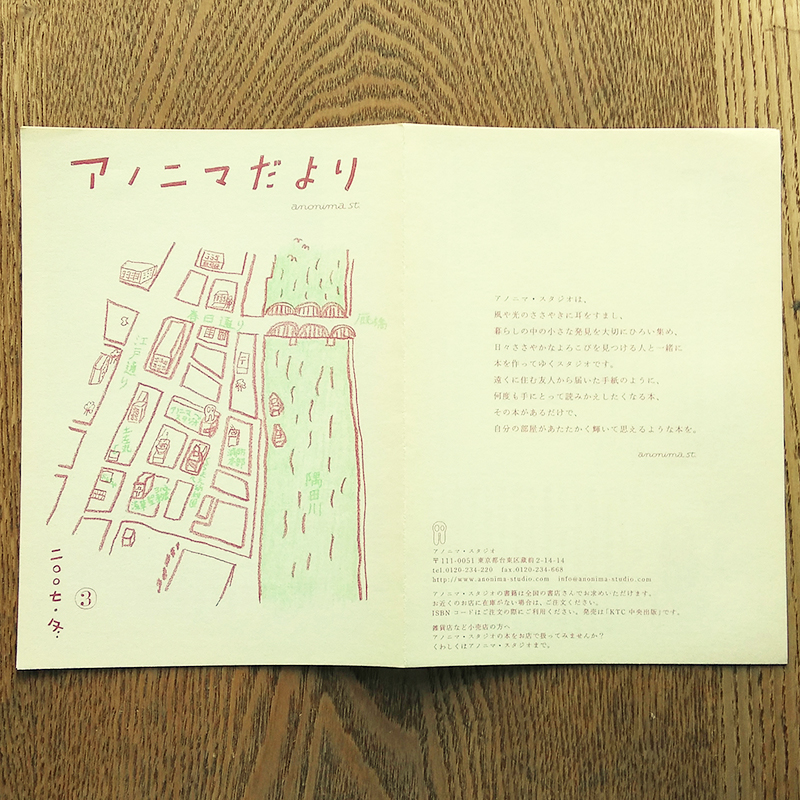 アノニマだより
anonima st.
春日通り
厩橋
江戸通り
隅田川
二〇〇七・冬・
3
アノニマ・スタジオは、
風や光のささやきに耳をすまし、
暮らしの中の小さな発見を大切にひろい集め、
日々ささやかなよろこびを見つける人と一緒に
本を作ってゆくスタジオです。
遠くに住む友人から届いた手紙のように、
何度も手にとって読みかえしたくなる本、
その本があるだけで、
自分の部屋があたたかく輝いて思えるような本を。
anonima st.
アノニマ・スタジオ
〒111-0051 東京都台東区蔵前2-14-14
tel.0120-234-220 fax.0120-234-668
http://www.anonima-studio.com info@anonima-studio.com
アノニマ・スタジオの書籍は全国の書店さんでお求めいただけます。
お近くのお店に在庫がない場合は、ご注文ください。
ISBNコードはご注文の際にご利用ください。発売は「KTC中央出版」です。
雑貨店など小売店の方へ
アノニマ・スタジオの本をお店で扱ってみませんか？
くわしくはアノニマ・スタジオまで。